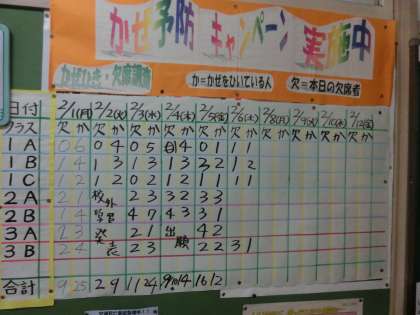 かぜ予防 キャンペーン 実施中
かぜひき・欠席調査
か=かぜをひいている人 欠=本日の欠席者
日付 2/1(月) 2/2(火) 2/3(水) 2/4(木) 2/5(金) 2/6(土) 2/8(月) 2/9(火) 2/10(水) 2/12(金)
クラス 欠 か 欠 か 欠 か 欠 か 欠 か 欠 か 欠 か 欠 か 欠 か 欠 か
1A 0 6 0 4 0 5 4 0 1 1 1
1B 1 4 1 3 1 3 1 3 2 1 2
1C 1 2 1 2 0 2 1 2 1 1 1 1
2A 2 1 校外 2 3 3 2 3 3
2B 1 4 学習 4 7 4 3 3 1
3A 2 3 発 2 1 出 4 2
3B 2 4 表 2 3 願 2 2 3 1
合計 9 25 2 9 11 24 14 16 12